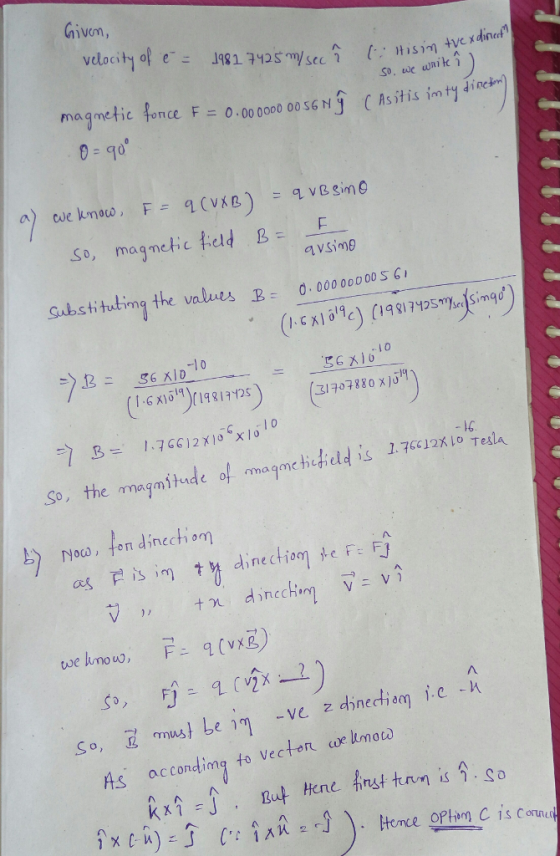 Given,
velocity of e⁻ = 19817425 m/sec î (∵ It is in +ve x direct
so, we write î)
magnetic force F = 0.0000000056 N ĵ (As it is in +y direction)
θ = 90°
a) we know, F = q(v×B) = qvB sinθ
so, magnetic field B = F / qv sinθ
Substituting the values B = 0.00000000561 / (1.6×10⁻¹⁹c) (19817425 m/sec)(sin90°)
=> B = 56×10⁻¹⁰ / (1.6×10⁻¹⁹)(19817425) = 56×10⁻¹⁰ / (31707880×10⁻¹⁹)
=> B = 1.76612×10⁻⁶×10⁻¹⁰
So, the magnitude of magneticfield is 1.76612×10⁻¹⁶ Tesla
b) Now, for direction
as F⃗ is in +y direction i.e F = Fĵ
v⃗ ,, +x direction v⃗ = vî
we know, F⃗ = q(v×B⃗)
so, Fĵ = q(vî × __?)
So, B⃗ must be in -ve z direction i.e -k̂
As according to vector we know
k̂×î = ĵ. But Here first term is î. so
î×(-k̂) = ĵ (∵ î×k̂ = -ĵ). Hence option C is correct